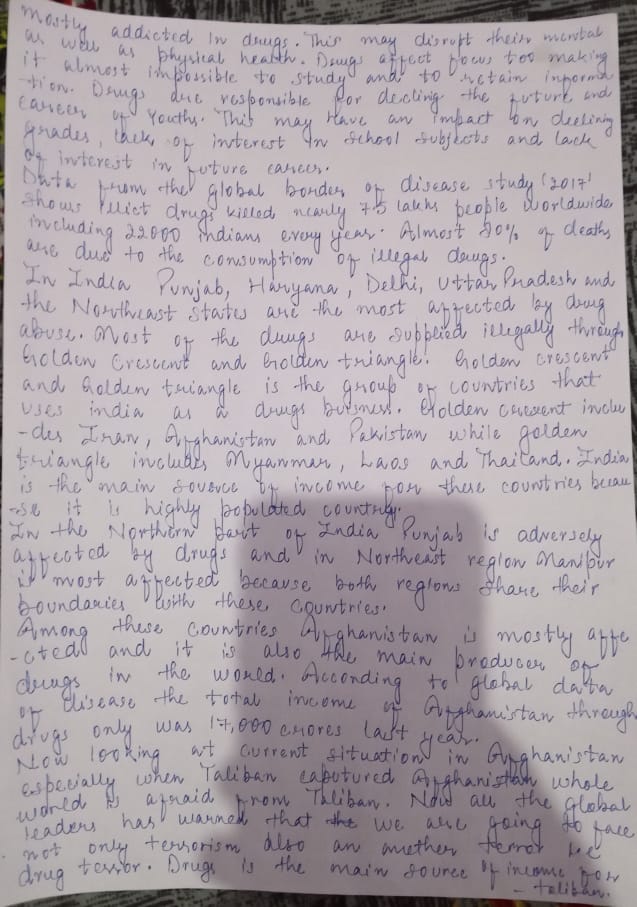 mostly addicted in drugs. This may disrupt their mental
as well as physical health. Drugs affect focus too making
it almost impossible to study and to retain informa
tion. Drugs are responsible for decling the future and
career of Youths. This may have an impact on declining
grades, lack of interest in school subjects and lack
of interest in future career.
Data from the global border of disease study (2017)
shows illict drugs killed nearly 7.5 lakhs people worldwide
including 22000 indians every year. Almost 90% of deaths
are due to the consumption of illegal drugs.
In India Punjab, Haryana, Delhi, Uttar Pradesh and
the Northeast states are the most affected by drug
abuse. Most of the drugs are supplied illegally through
Golden Crescent and Golden triangle. Golden crescent
and Golden triangle is the group of countries that
uses india as a drugs business. Golden crescent inclu
-des Iran, Afghanistan and Pakistan while golden
triangle includes Myanmar, Laos and Thailand. India
is the main source of income for these countries becau
-se it is highly populated country.
In the Northern part of India Punjab is adversely
affected by drugs and in Northeast region Manipur
is most affected because both regions share their
boundaries with these countries.
Among these countries Afghanistan is mostly affe
-cted and it is also the main producer of
drugs in the world. According to global data
of disease the total income of Afghanistan through
drugs only was 17,000 crores last year.
Now looking at current situation in Afghanistan
especially when Taliban cabutured Afghanistan whole
world is afraid from Taliban. Now all the global
leaders has warned that we are going to face
not only terrorism also an another terror i.e
drug terror. Drugs is the main source of income for
- taliban.